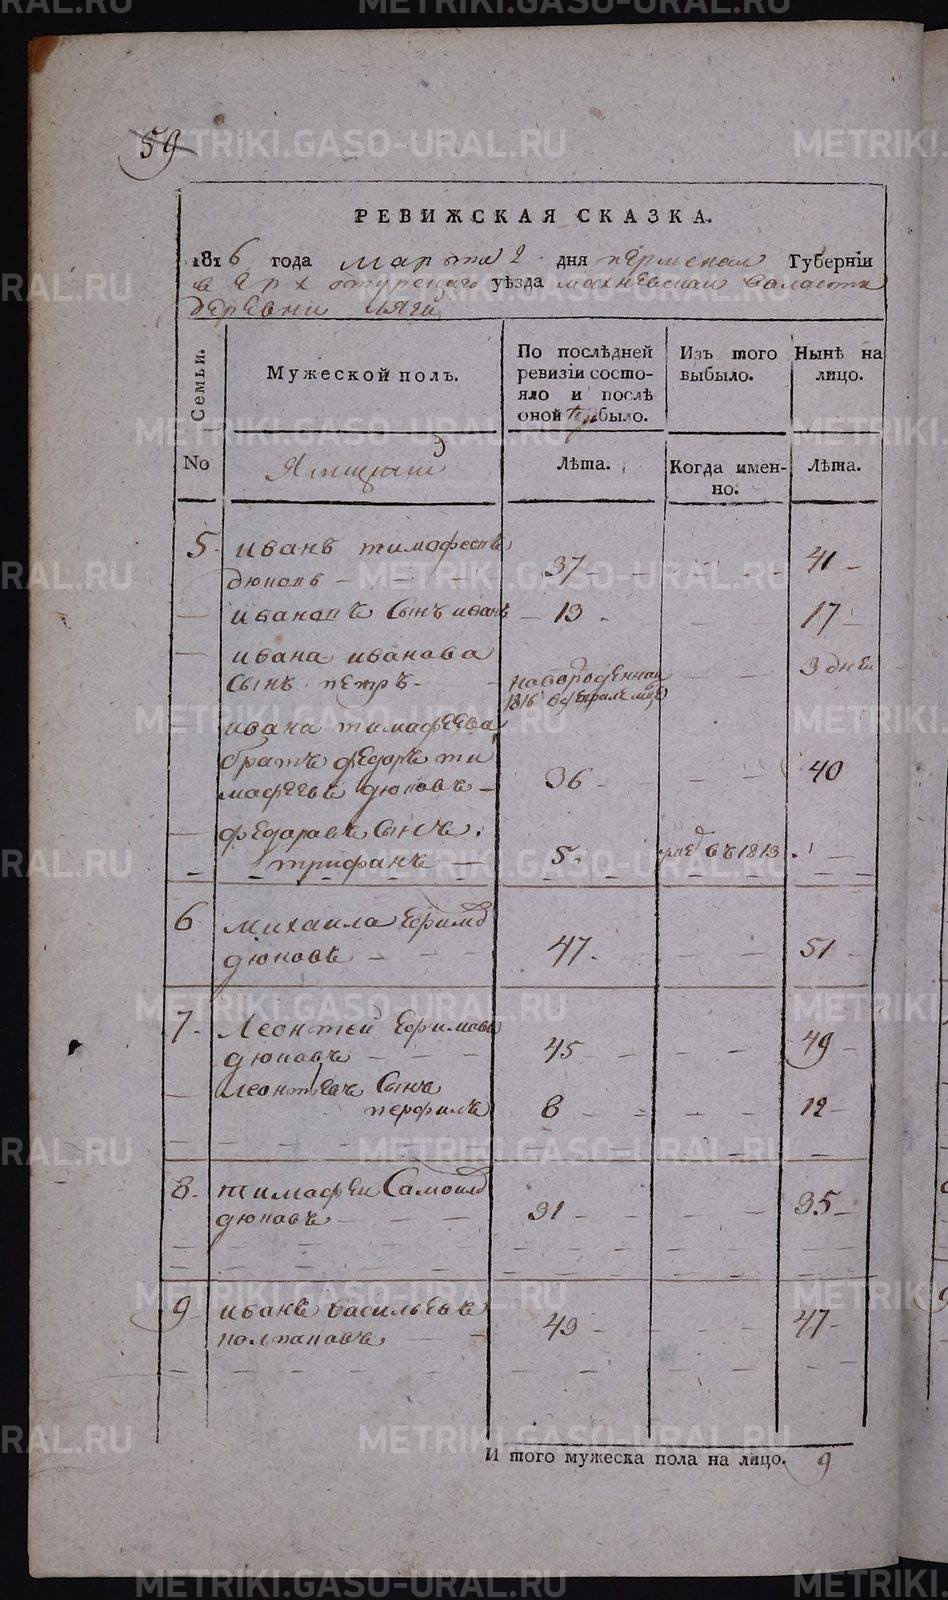 59
РЕВИЖСКАЯ СКАЗКА.
1816 года марта 2 дня пермская Губернїи
верхотурскаго уѣзда махневскаи валасти
деревни
Семьи.
Мужеской полъ.
По послѣдней ревизїи состояло и послѣ оной прибыло.
Изъ того выбыло.
Нынѣ на лицо.
No
Ямщики
Лѣта.
Когда именно.
Лѣта.
5. иванъ тимофеевъ
дюковъ - 37 - 41 -
ивановъ сынъ иванъ - 13 - 17 -
ивана иванава
сынъ петръ - новорожденнаи 3 дней
1816 в феврале мце
ивана тимафеева
братъ федоръ ти
мафеевъ дюковъ - 36 - 40
федаравъ сынъ
трифанъ - 5. въ 1813
6 михаила Ефимов
дюковъ 47. 51 -
7. Леонтеи Ефимовъ
дюковъ 45 49 -
леонтьевъ сынъ
перфилъ 8 12 -
8. тимафеи Самоилов
дюковъ 31 35 -
9 иванъ васильевъ
43 - 47 -
И того мужеска пола на лицо. 9
METRIKI.GASO-URAL.RU